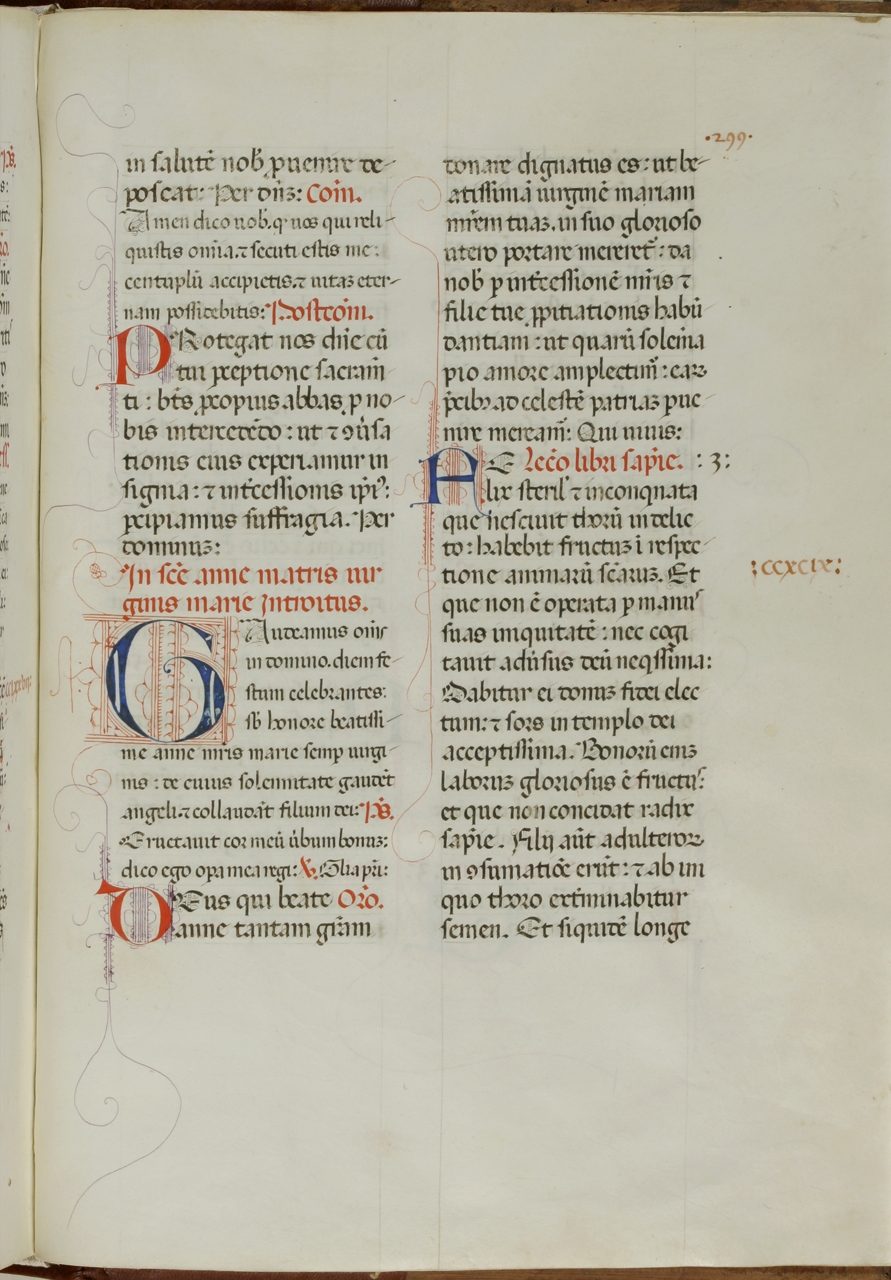 ·299·
in salutē nob̄ ꝓuenire de-
poscat: Per dn̄ꝫ: Com̄.
Amen dico uob̄. ꝙ uos qui reli-
quistis om̄ia. ⁊ secuti estis me:
centuplū accipietis. ⁊ uitaꝫ eter-
nam possidebitis: Postcom̄.
PRotegat nos dn̄e cū
tui ꝑceptione sacram̄
ti: bt̄s ꝓcopius abbas ꝓ no-
bis intercedēdo: ut ⁊ ꝯuersa
tionis eius experiamur in
signia: ⁊ int̄cessionis ip̄iꝰ:
ꝑcipiamus suffragia. Per
dominuꝫ:
In sc̄e anne matris uir
ginis marie Introitus.
GAudeamus om̄s
in domino. diem fe-
stum celebrantes:
sb̄ honore beatissi-
me anne mr̄is marie semꝑ uirgi-
nis: de cuius solennitate gaudēt
angeli. ⁊ collaudāt filium dei: Ps̄.
Eructauit cor meū ūbum bonuꝫ:
dico ego oꝑa mea regi: ℣. Gl̄ia pr̄i:
DEus qui beate Orō.
anne tantam gr̄am
donare dignatus es: ut be-
atissimā uirginē mariam
mr̄em tuaꝫ. in suo glorioso
utero portare mereret᷑: da
nob̄ ꝑ int̄cessionē mr̄is ⁊
filie tue ꝓpitiationis habū
dantiam: ut quarū solēnia
pio amore amplectim᷑: eaꝝ
p̄cibꝫ ad celestē patriaꝫ ꝑue
nire meream᷑: Qui uiuis:
Lec̄o libri sapīe. :3:
FElix sterilꝭ ⁊ inconqnata
que nesciuit thorū in delic
to: habebit fructuꝫ ī respec-
tione animarū sc̄aruꝫ. Et
:ccxcix:
que non ē operata ꝑ manus
suas iniquitatē: nec cogi
tauit aduersus deū neqssima:
Dabitur ei donuꝫ fidei elec
tum: ⁊ sors in templo dei
acceptissima. Bonorū eniꝫ
laboruꝫ gloriosus ē fructꝰ:
et que non concidat radix
sapīe. Filij aūt adulteroꝝ
in ꝯsumatiōe erūt: ⁊ ab ini
quo thoro exterminabitur
semen. Et siquidē longe